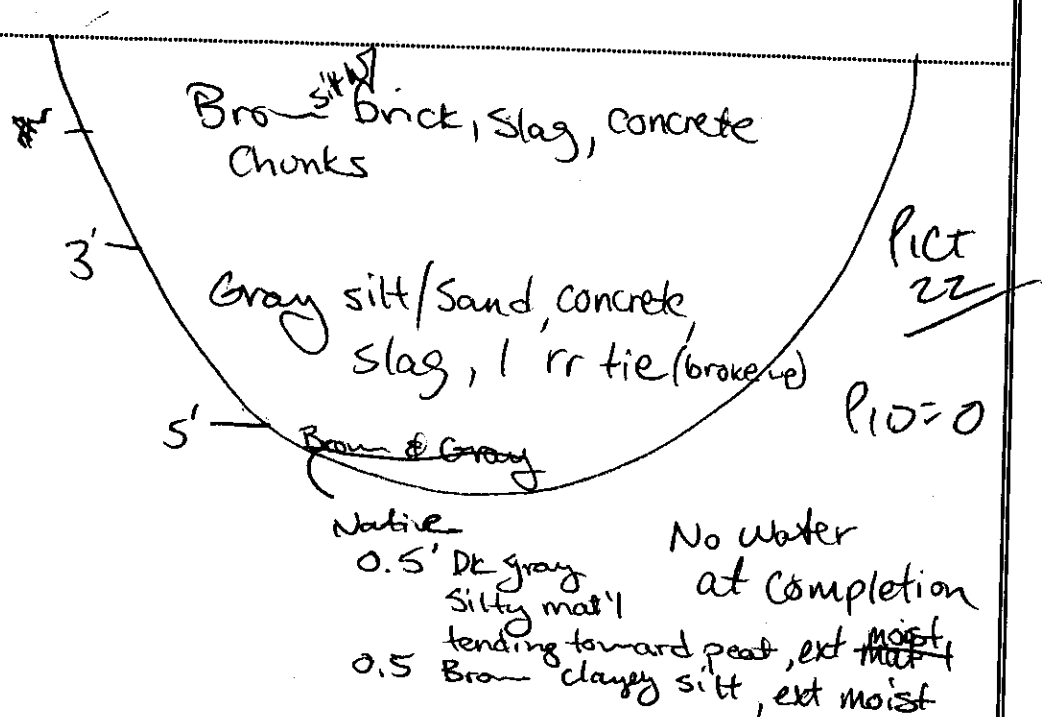 Brown silt w/ brick, Slag, Concrete
Chunks
3'
Pict
22
Gray silt/Sand, concrete,
slag, 1 rr tie (broken)
PID=0
5'
Brown & Gray
Native
0.5' Dk gray
Silty mat'l
tending toward peat, ext moist,
0.5 Brown clayey silt, ext moist
No water
at completion